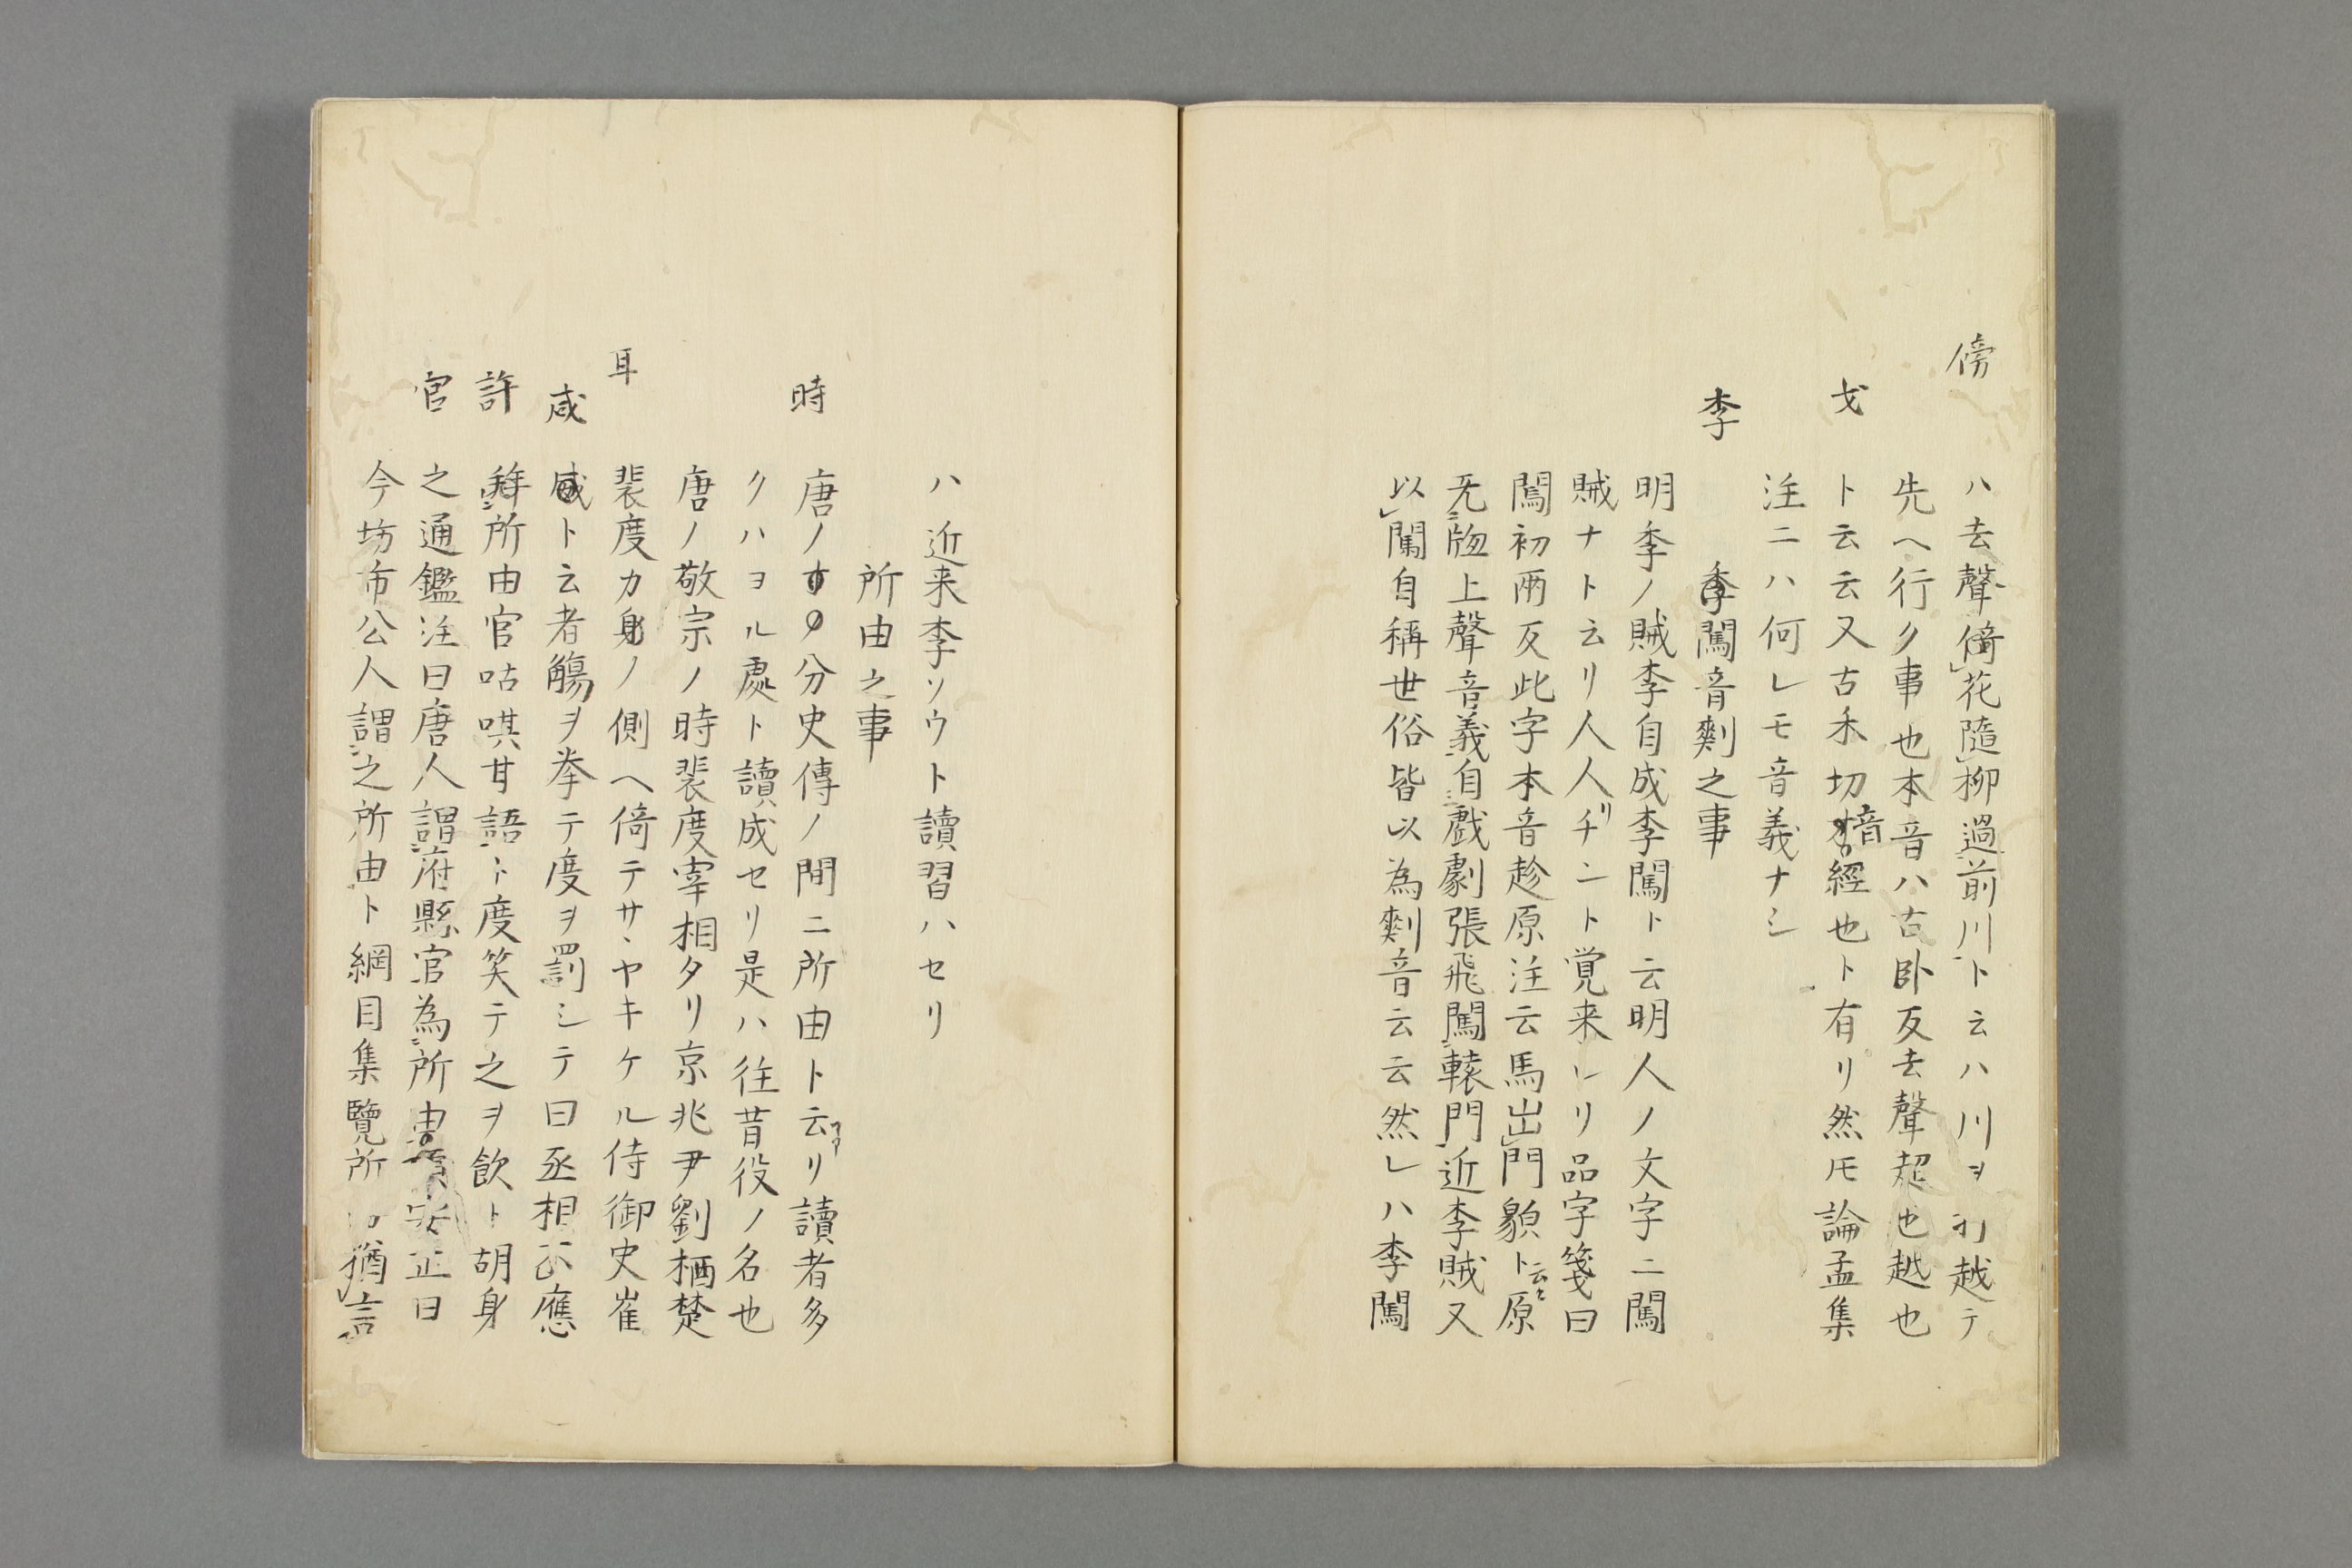 傍
ハ去聲倚花隨柳過前川ト云ハ川ヲ打越テ
先ヘ行ク事也本音ハ古卧反去聲超也越也
戈
ト云云又古禾切音經也ト有リ然モ論孟集
注ニハ何レモ音義ナシ
李
季闖音剿之事
明季ノ賊李自成李闖ト云明人ノ文字ニ闖
賊ナトト云リ人人チンリト覚来レリ品字箋曰
闖初兩反此字本音趁原注云馬出門貌ト云々原
无牎上聲音義自戲劇張飛闖轅門近李賊又
以闖自稱世俗皆以為剿音云云然レハ李闖
ハ近来李ソウト讀習ハセリ
所由之事
時
唐ノ分史傳ノ間ニ所由ト云アリ讀者多
クハヨル處ト讀成セリ是ハ往昔役ノ名也
唐ノ敬宗ノ時裴度宰相タリ京兆尹劉栖楚
耳
裴度カ身ノ側ヘ倚テサヽヤキケル侍御史崔
咸
咸ト云者觴ヲ挙テ度ヲ罰シテ曰丞相不應
許
所由官呫嗫甘語ト度笑テ之ヲ飲ト胡身
官
之通鑑注曰唐人謂府縣官為所由質安正曰
今坊市公人謂之所由ト綱目集覽所由猶言